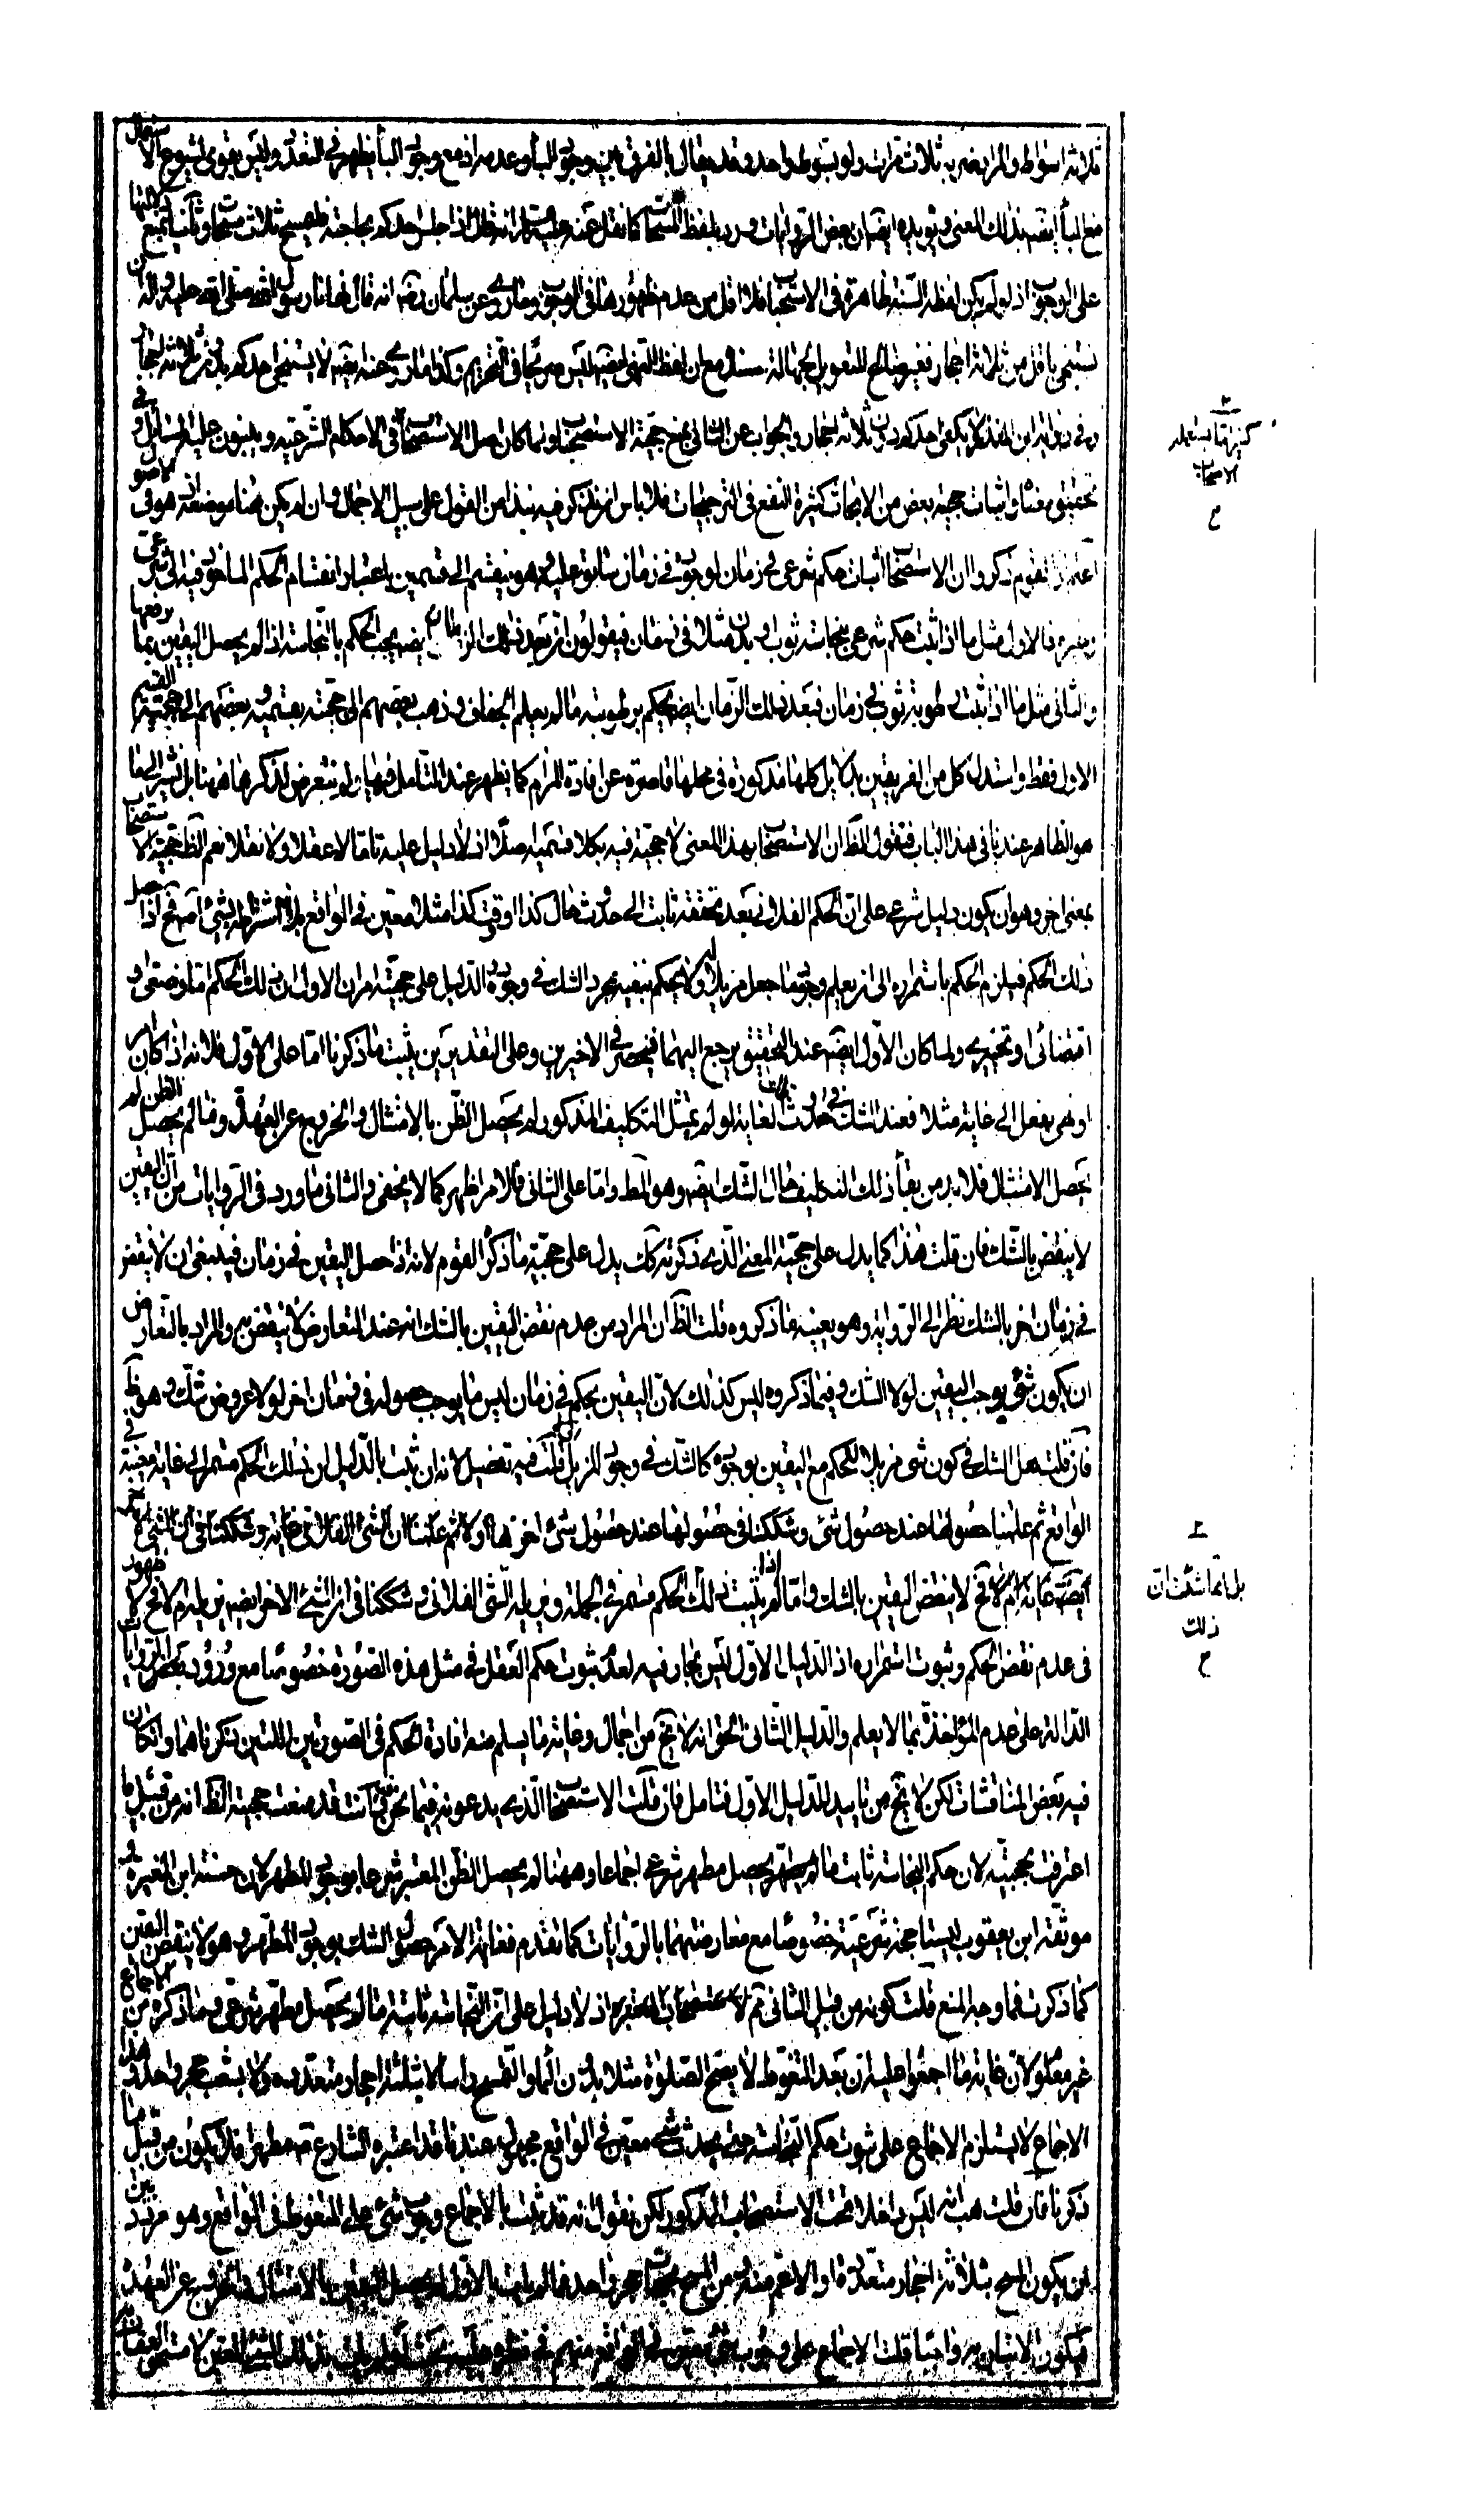 ثلاثة اسواط والمراد ضربه ثلاث مرات ولو بسوط واحد وقد يقال بالفرق بين وجود الباء وعدمه اذ مع وجود الباء يظهر في التعدد وليس بقوى لشيوع الاستعمال
مع الباء ايضا بذلك المعنى ويؤيده ايضا ان بعض الروايات ورد بلفظ المسحات كما نقل عنه انه قال اذا جلس احدكم لحاجة فليمسح ثلاث مسحات وثانيا بمنع دلالتها
على الوجوب اذ لو لم يكن لفظة السنة ظاهرة في الاستحباب فلا اقل من عدم ظهورها في الوجوب وما روى عن سلمان رضه انه قال نهانا رسول الله صلى الله عليه واله ان
نستنجى باقل من ثلاثة احجار فغير صالح للتعويل لجهالة سنده مع ان لفظ النهى ايضا ليس صريحا في التحريم وكذا ما روى عنه ايضا لا يستنجى احدكم بدون ثلاثة احجار
وفي رواية ابن المنذر لا يكفى احدكم دون ثلاثة احجار والجواب عن الثانى بمنع حجية الاستصحاب ولما كان اصل الاستصحاب في الاحكام الشرعية ويبتنون عليه المسائل وفي
تحقيق معناه واثبات حجيته بعض من الابحاث كثيرة النفع في الترجيحات فلا باس ان نذكر فيه نبذا من القول على سبيل الاجمال وان لم يكن هنا موضعه هو في الاصول
اعلم ان القوم ذكروا ان الاستصحاب اثبات حكم شرعى في زمان لوجوده في زمان سابق عليه وهو ينقسم الى قسمين باعتبار انقسام الحكم الماخوذ فيه الى شرعى
وغيره فالاول مثل ما اذا ثبت حكم شرعى بنجاسة ثوب او بدن مثلا في زمان فيقولون ان بعد ذلك الزمان ايضا يجب الحكم بالنجاسة اذا لم يحصل اليقين بما يرفعها
والثانى مثل ما اذا ثبت رطوبة ثوب في زمان فبعد ذلك الزمان ايضا يحكم برطوبته ما لم يعلم الجفاف وذهب بعضهم الى حجيته بقسميه وبعضهم الى حجية القسم
الاول فقط واستدل كل من الفريقين بدلايل كلها مذكورة في محلها قاصرة عن افادة المرام كما يظهر عند التامل فيها ولم نتعرض لذكرها ههنا بل نشير الى ما
هو الظاهر عندنا في هذا الباب فنقول الظ ان الاستصحاب بهذا المعنى لا حجية فيه بكلا قسميه اصلا اذ لا دليل عليه تاما لا عقلا ولا نقلا نعم الظ حجية الاستصحاب
بمعنى اخر وهو ان يكون دليل شرعى على ان الحكم الفلانى بعد تحققه ثابت الى حدوث حال كذا او وقت كذا مثلا معين في الواقع بلا اشتراطه بشيء اصلا فح اذا حصل
ذلك الحكم فيلزم الحكم باستمراره الى ان يعلم وجود ما جعل مزيلا له ولا يحكم بنفيه بمجرد الشك في وجوده والدليل على حجيته امران الاول ان ذلك الحكم اما وضعى او
اقتضائى او تخييرى ولما كان الاول ايضا عند التحقيق يرجع اليهما فينحصر في الاخيرين وعلى التقديرين يثبت ما ذكرنا اما على الاول فلانه اذا كان امر
او نهى بفعل الى غاية مثلا فعند الشك في حدوث تلك الغاية لو لم يمتثل التكليف المذكور لم يحصل الظن بالامتثال والخروج عن العهدة وما لم يحصل الظن لم
يحصل الامتثال فلا بد من بقاء ذلك التكليف حال الشك ايضا وهو المط واما على الثانى فالامر اظهر كما لا يخفى والثانى ما ورد في الروايات من ان اليقين
لا ينقض بالشك فان قلت هذا كما يدل على حجية المعنى الذى ذكرته كك يدل على حجية ما ذكره القوم لانه اذا حصل اليقين في زمان فينبغى ان لا ينقض
في زمان اخر بالشك نظرا الى الرواية وهو بعينه ما ذكروه قلت الظ ان المراد من عدم نقض اليقين بالشك انه عند التعارض لا ينقض به والمراد بالتعارض
ان يكون شيء يوجب اليقين لولا الشك وفيما ذكروه ليس كذلك لان اليقين بحكم في زمان ليس مما يوجب حصوله في زمان اخر لولا عروض شك وهو ظ
فان قلت هل الشك في كون شيء مزيلا للحكم مع اليقين بوجوده كالشك في وجود المزيل او لا قلت فيه تفصيل لانه ان ثبت بالدليل ان ذلك الحكم مستمر الى غاية معينة في
الواقع ثم علمنا حصولها عند حصول شيء وشككنا في حصولها عند حصول شيء اخر فح لا ينقض
ايضا غاية له ام لا فح لا ينقض اليقين بالشك واما اذا لم يثبت ذلك بل ان الحكم مستمر في الجملة ومزيله الشيء الفلانى وشككنا في ان الشيء الاخر ايضا مزيل له ام لا فح لا ظهور
في عدم نقض الحكم وثبوت استمراره اذ الدليل الاول ليس بجار فيه لعدم ثبوت حكم العقل في مثل هذه الصورة خصوصا مع ورود بعض الروايات
الدالة على عدم المؤاخذة بما لا يعلم والدليل الثانى الحق انه لا يخ من اجمال وغاية ما يسلم منه افادة الحكم في الصورتين اللتين ذكرناهما وان كان
فيه بعض المناقشات لكن لا يخ من تاييد للدليل الاول فتامل فان قلت الاستصحاب الذى يدعونه فيما نحن فيه وانت قد منعت حجيته الظ انه من قبيل ما
اعترفت بحجيته لان حكم النجاسة ثابت ما لم يحصل مطهر شرعى اجماعا وههنا لم يحصل الظن المعتبر شرعا بوجود المطهر لان حسنة ابن المغيرة
موثقة ابن يعقوب ليستا حجة شرعية خصوصا مع معارضتهما بالروايات كما تقدم فغاية الامر حصول الشك بوجود المطهر وهو لا ينقض اليقين
كما ذكرت فما وجه المنع قلت كونه من قبيل الثانى مم اذ لا دليل على ان النجاسة ثابتة ما لم يحصل مطهر شرعى وما ذكره من الاجماع
غير معلوم لان غاية ما اجمعوا عليه ان بعد التغوط لا يصح الصلوة مثلا بدون الماء والتمسح راسا لا بثلثة احجار متعددة ولا بشعب حجر واحد وهذا
الاجماع لا يستلزم الاجماع على ثبوت حكم النجاسة حتى يحدث شيء معين في الواقع مجهول عندنا قد اعتبره الشارع مطهرا فلا يكون من قبيل ما
ذكرنا فان قلت هب انه ليس داخلا تحت الاستصحاب المذكور لكن نقول انه قد ثبت بالاجماع وجوب شيء على المتغوط في الواقع وهو مردد بين
ان يكون المسح بثلاثة احجار متعددة او الاعم منه ومن المسح بجهات حجر واحد فما لم يات بالاول لم يحصل اليقين بالامتثال والخروج عن العهدة
فيكون الاتيان به واجبا قلت الاجماع على وجوب شيء معين في الواقع مبهم في نظره عليه بحيث لو لم يات بذلك الشيء المعين لاستحق العقاب